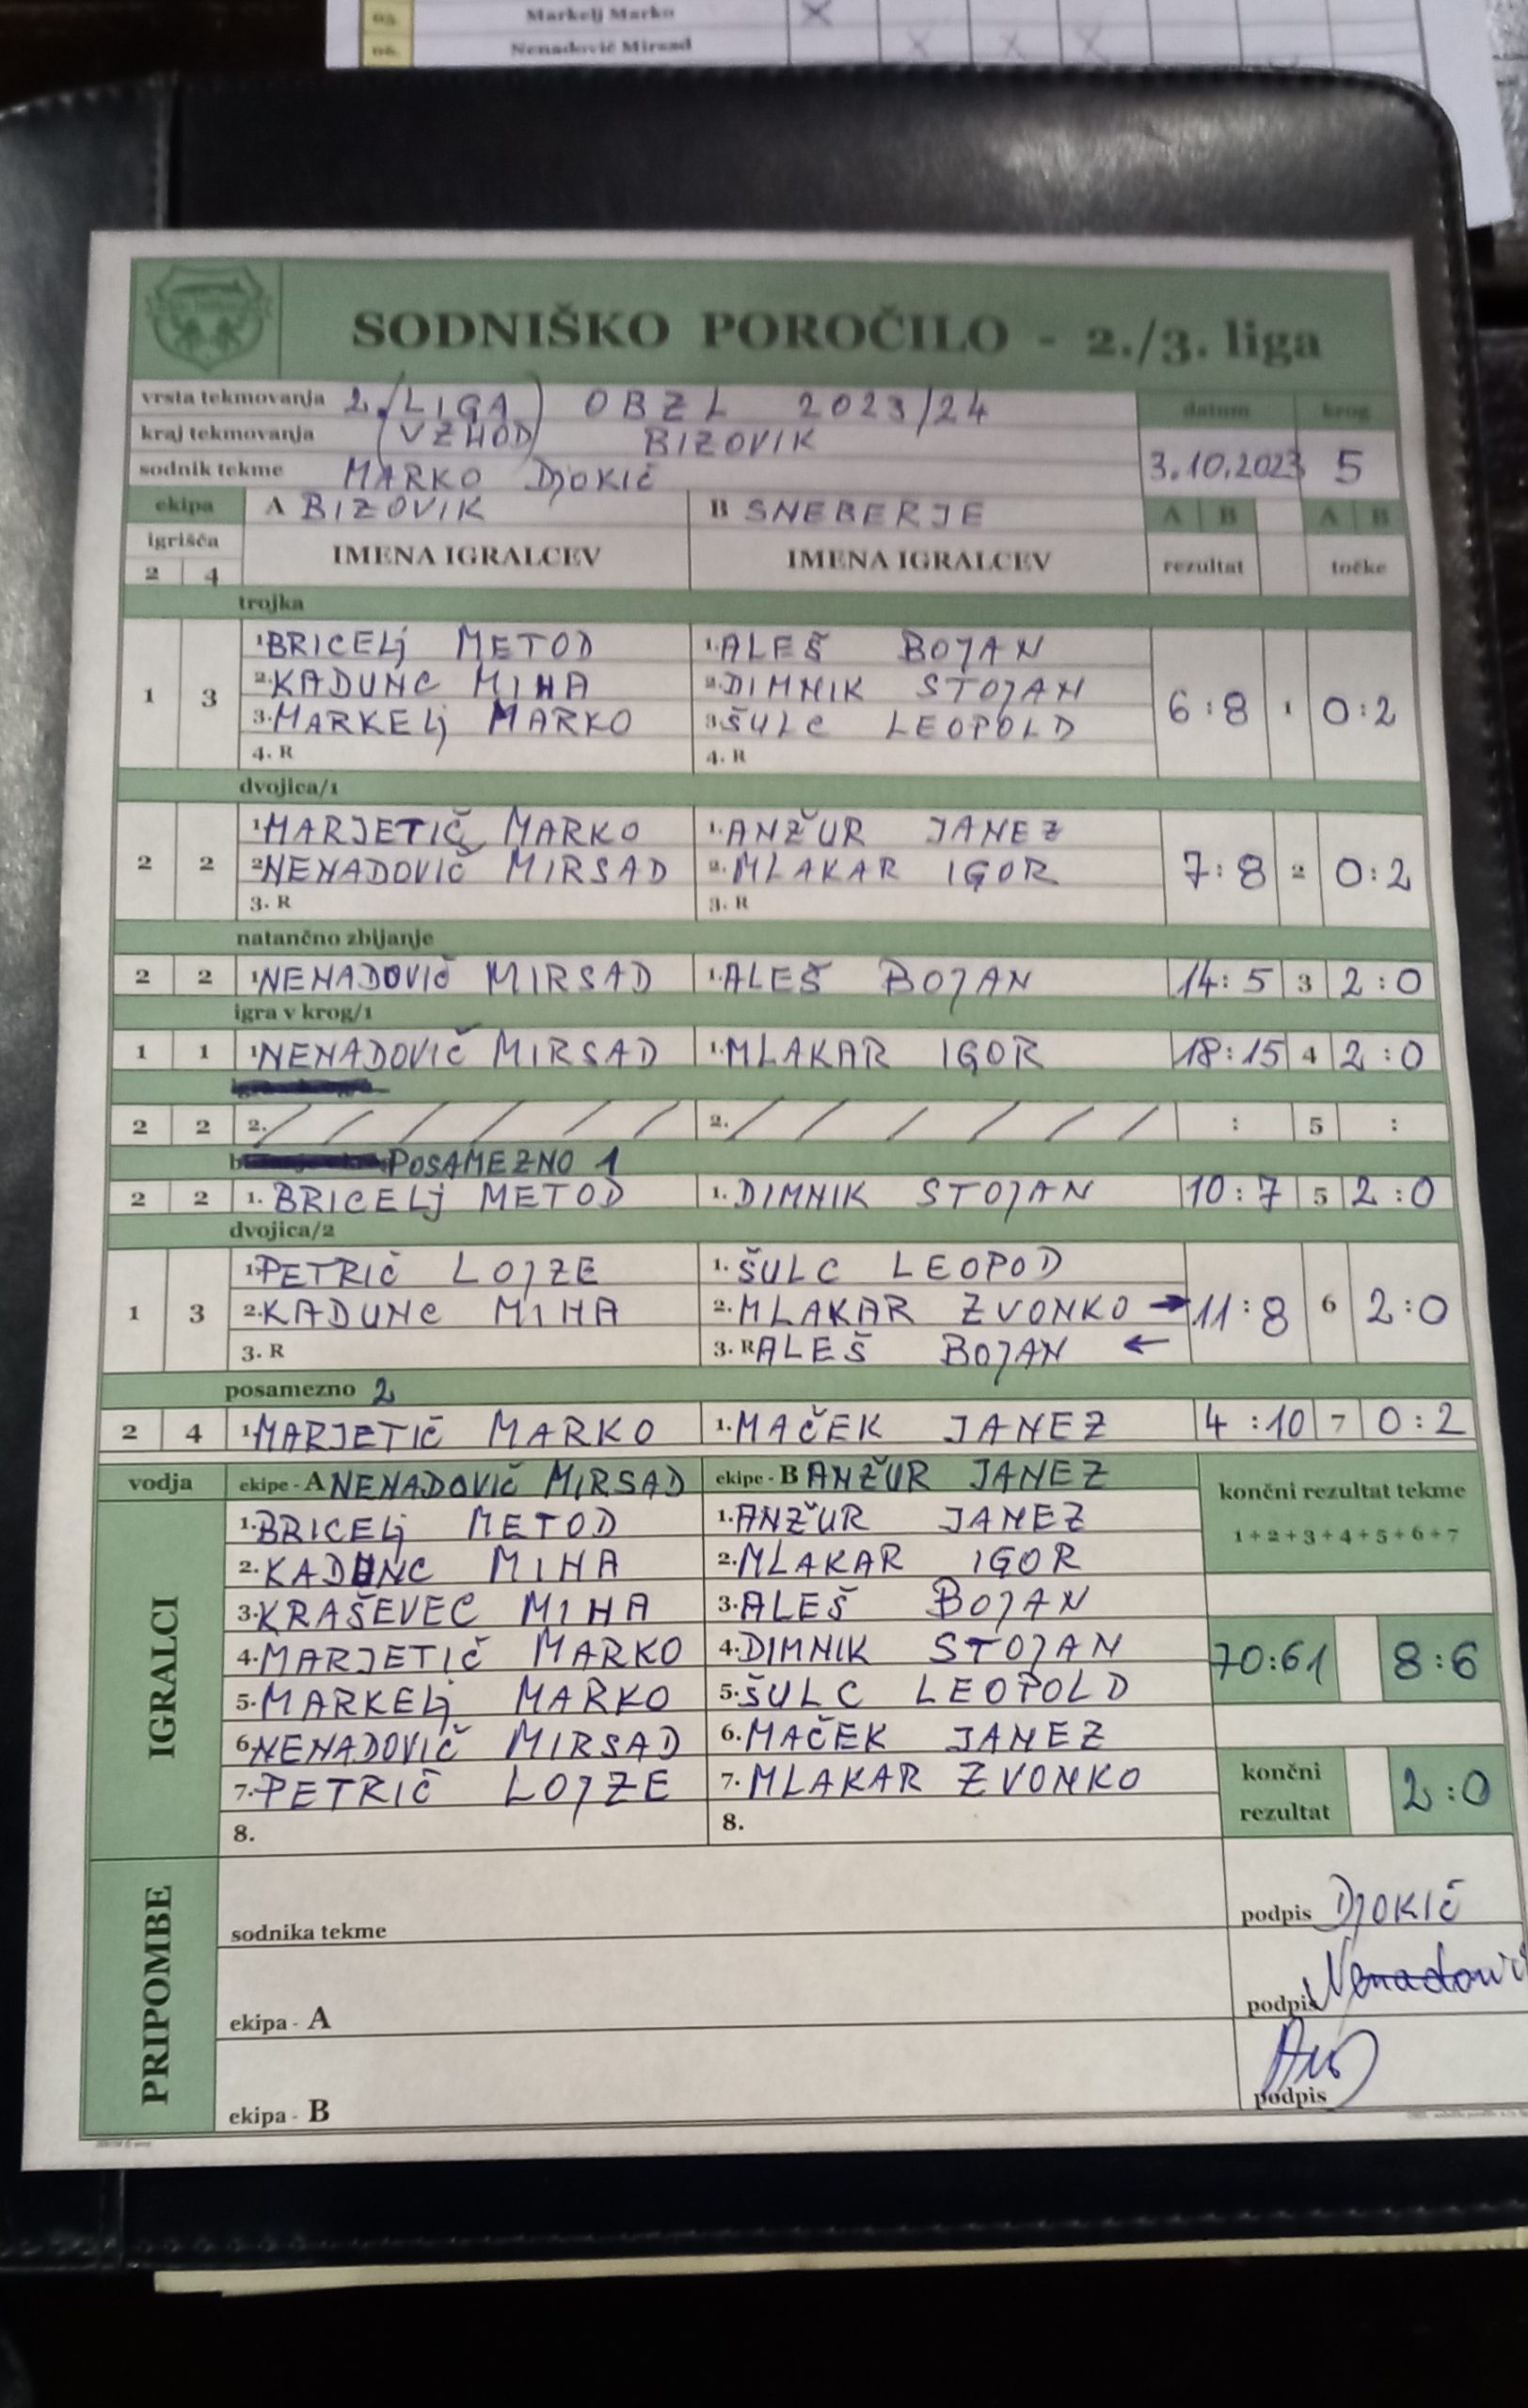 05. Markelj Marko X
06. Nenadovič Mirsad X X X
SODNIŠKO POROČILO - 2./3. liga
vrsta tekmovanja 2. (LIGA) OBZL 2023/24 datum krog
kraj tekmovanja (VZHOD) BIZOVIK
sodnik tekme MARKO DJOKIČ 3.10.2023 5
ekipa A BIZOVIK B SNEBERJE A B A B
igrišča IMENA IGRALCEV IMENA IGRALCEV rezultat točke
2 4
trojka
1 3 1. BRICELj METOD 1. ALEŠ BOJAN 6:8 1 0:2
2. KADUNC MIHA 2. DIMNIK STOJAN
3. MARKELj MARKO 3. ŠULC LEOPOLD
4. R 4. R
dvojica/1
2 2 1. MARJETIČ MARKO 1. ANŽUR JANEZ 7:8 2 0:2
2. NENADOVIČ MIRSAD 2. MLAKAR IGOR
3. R 3. R
natančno zbijanje
2 2 1. NENADOVIČ MIRSAD 1. ALEŠ BOJAN 14:5 3 2:0
igra v krog/1
1 1 1. NENADOVIČ MIRSAD 1. MLAKAR IGOR 18:15 4 2:0
2 2 2. / / / / / / 2. / / / / / / : 5 :
POSAMEZNO 1
2 2 1. BRICELj METOD 1. DIMNIK STOJAN 10:7 5 2:0
dvojica/2
1 3 1. PETRIČ LOJZE 1. ŠULC LEOPOD 11:8 6 2:0
2. KADUNC MIHA 2. MLAKAR ZVONKO →
3. R 3. R ALEŠ BOJAN ←
posamezno 2
2 4 1. MARJETIČ MARKO 1. MAČEK JANEZ 4:10 7 0:2
vodja ekipe - A NENADOVIČ MIRSAD ekipe - B ANŽUR JANEZ končni rezultat tekme
IGRALCI 1. BRICELj METOD 1. ANŽUR JANEZ 1+2+3+4+5+6+7
2. KADUNC MIHA 2. MLAKAR IGOR
3. KRAŠEVEC MIHA 3. ALEŠ BOJAN
4. MARJETIČ MARKO 4. DIMNIK STOJAN 70:61 8:6
5. MARKELj MARKO 5. ŠULC LEOPOLD
6. NENADOVIČ MIRSAD 6. MAČEK JANEZ
7. PETRIČ LOJZE 7. MLAKAR ZVONKO končni rezultat 2:0
8. 8.
PRIPOMBE
sodnika tekme podpis DJOKIČ
ekipa - A podpis Nenadović
ekipa - B podpis